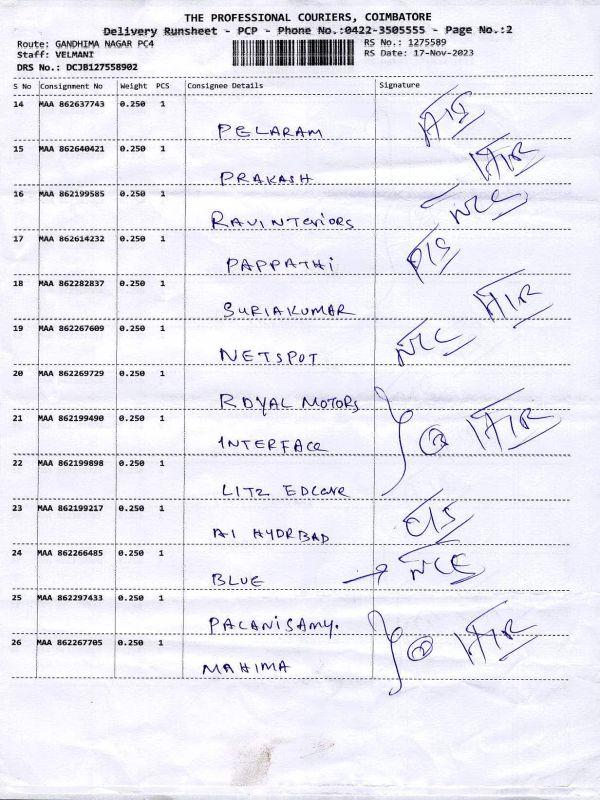 THE PROFESSIONAL COURIERS, COIMBATORE
Delivery Runsheet - PCP - Phone No.:0422-3505555 - Page No.:2
Route: GANDHIMA NAGAR PC4 RS No.: 1275589
Staff: VELMANI RS Date: 17-Nov-2023
DRS No.: DCJB127558902
S No Consignment No Weight PCS Consignee Details Signature
14 MAA 862637743 0.250 1
PELARAM
15 MAA 862640421 0.250 1
PRAKASH
16 MAA 862199585 0.250 1
RAVINTeriors
17 MAA 862614232 0.250 1
PAPPATHI
18 MAA 862282837 0.250 1
SURIAKUMAR
19 MAA 862267609 0.250 1
NETSPOT
20 MAA 862269729 0.250 1
ROYAL MOTORS
21 MAA 862199490 0.250 1
INTERFACE
22 MAA 862199898 0.250 1
LITZ
23 MAA 862199217 0.250 1
AI HYDRBAD
24 MAA 862266485 0.250 1
BLUE
25 MAA 862297433 0.250 1
PALANISAMY.
26 MAA 862267705 0.250 1
MAHIMA